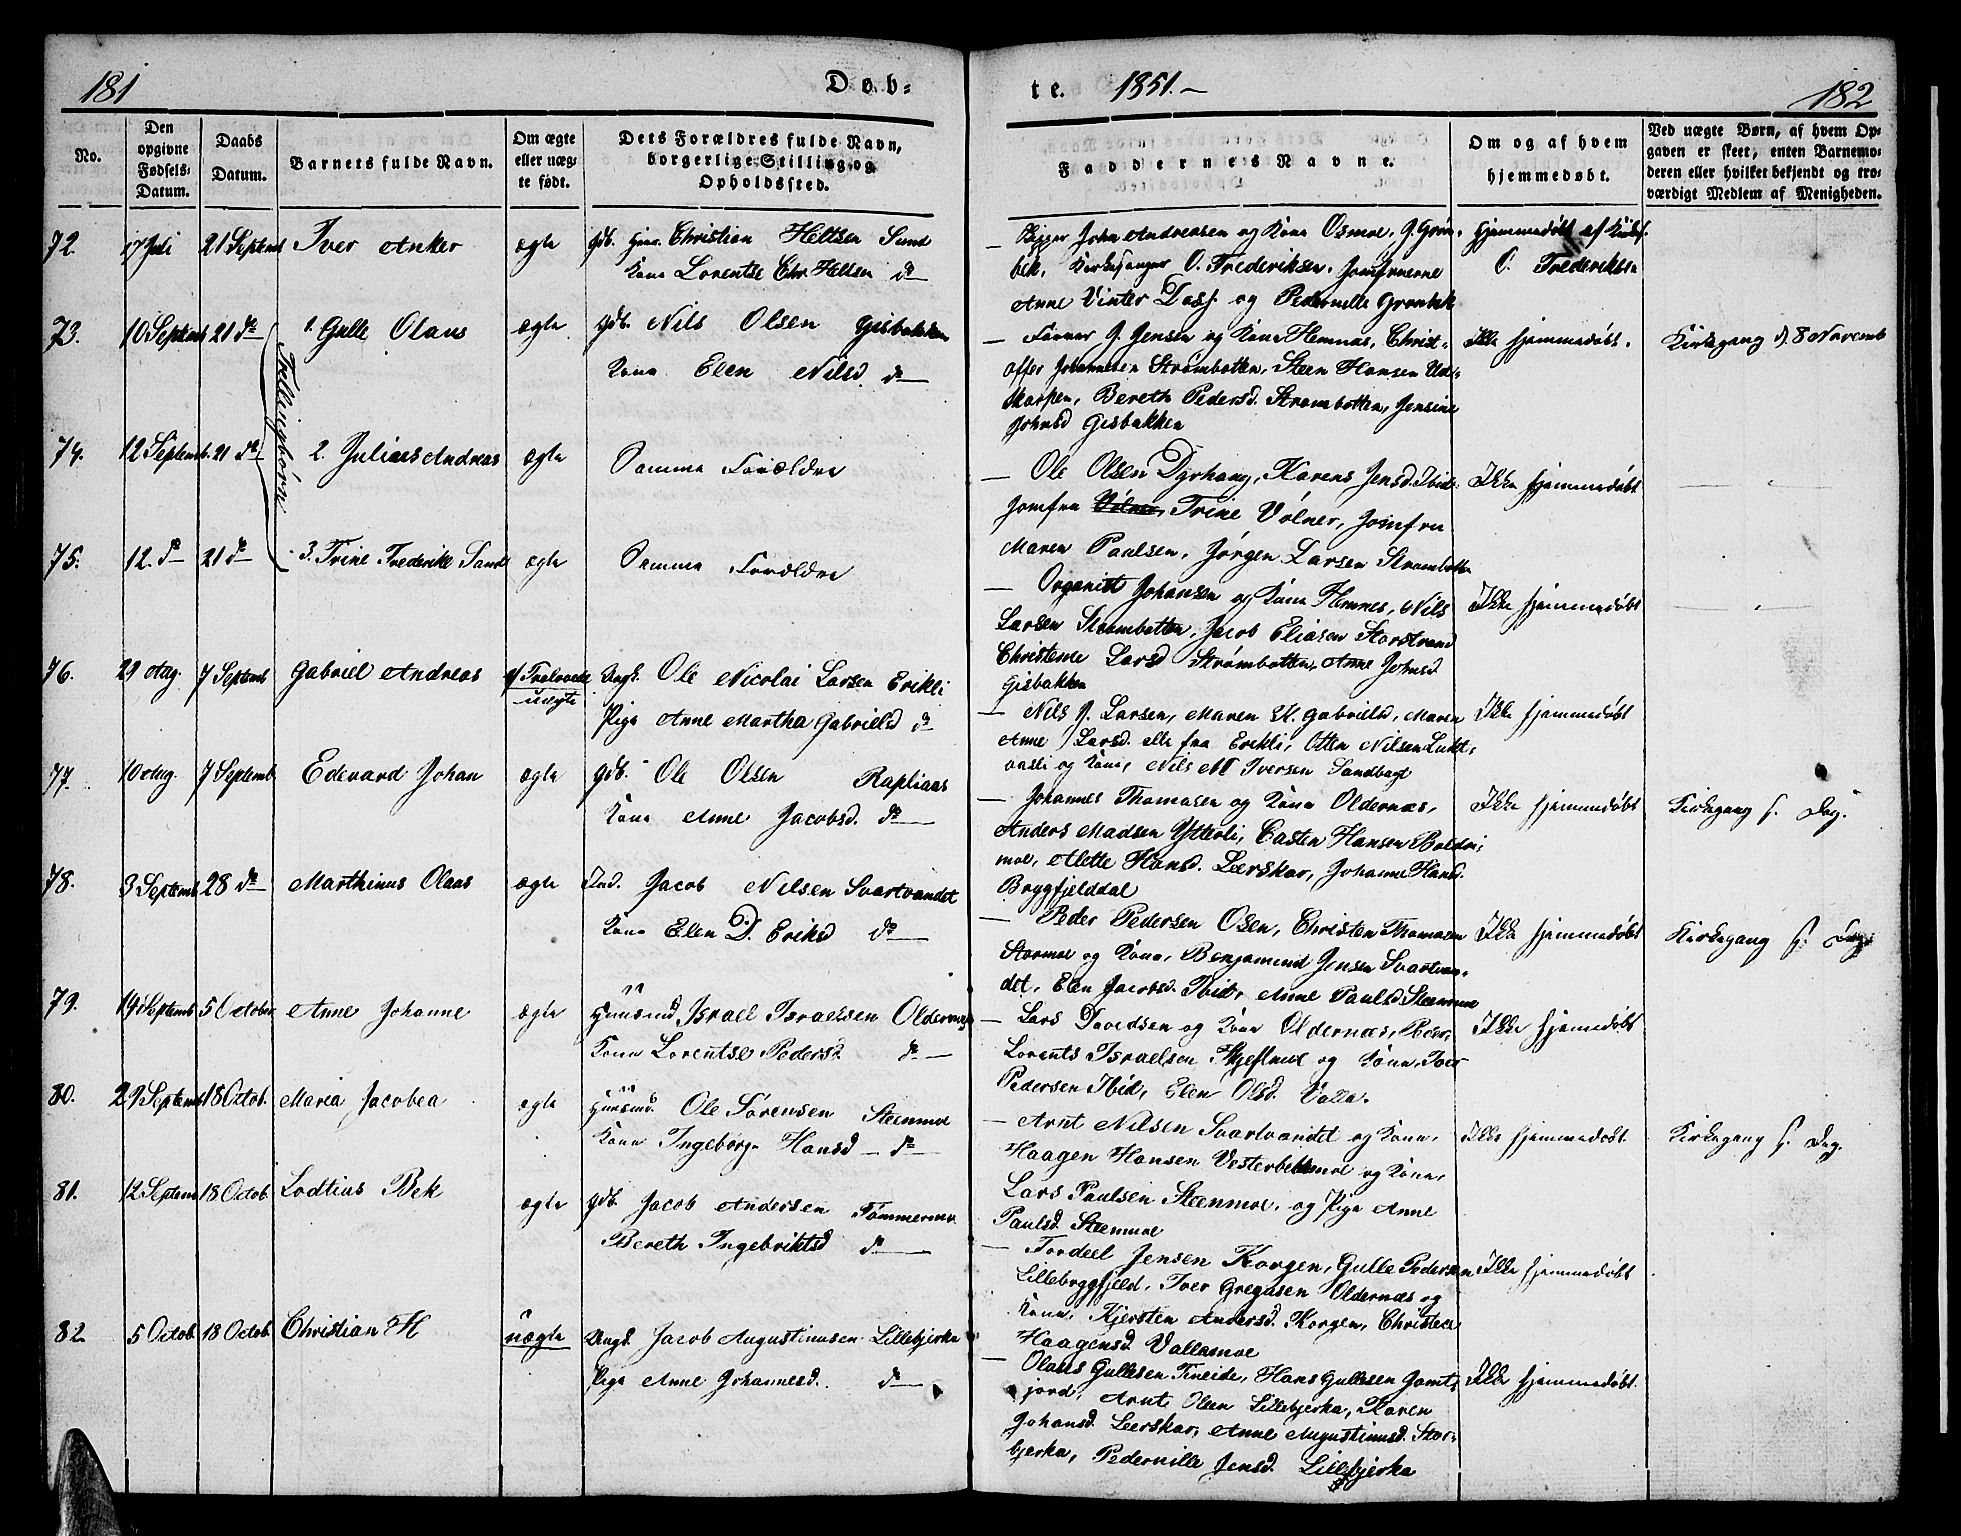 181
Døb-
te. 1851.-
182
No.
Den opgivne Fødsels-Datum.
Daabs Datum.
Barnets fulde Navn.
Om ægte eller uæg-te født.
Dets Forældres fulde Navn, borgerlige Stilling og Opholdssted.
Faddernes Navne.
Om og af hvem hjemmedøbt.
Ved uægte Børn, af hvem Op-gaven er skeet, enten Barnemo-deren eller hvilket bekjendt og tro-værdigt Medlem af Menigheden.
72. 17 Juli 21 Septemb Iver Anker ægte Gdb. Christian Heltsen Sund
Kone Lorentse Chr. Heltsen do
John Andreasen og Kone Osmoe, J. Grøn-
bek, Kirkesanger O. Frederiksen, Jomfruerne
Anne Vinter Dass. og Pedernelle Grønbek
Hjemmedøbt af Kirkes.
O. Frederiksen
73. 10 Septemb 21 do 1. Gulle Olaus ægte Gdb. Nils Olsen Gisbakken
Kone Elen Nilsd do
Trillingbørn
- Farver J. Jensen og Kone Hemnæs, Christ-
offer Johannesen Strømbotten, Steen Hansen Ud-
skarpen, Bereth Pedersd. Strømbotten, Jensine
Johnsd Gisbakken
Ikke hjemmedøbt.
Kirkegang d. 8 Novemb
74. 12 Septemb. 21 do 2. Julius Andreas ægte Samme Forældre
- Ole Olsen Dyrhaug, Karens Jensd. Ibid.
Jomfru Trine Volner, Jomfru
Maren Paulsen, Jørgen Larsen Strømbotten
Ikke hjemmedøbt
75. 12. do 21 do 3. Trine Frederikke Sand ægte Samme Forældre
- Organist Johansen og Kone Hemnes, Nils
Larsen Strømbotten, Jacob Eliasen Storstrand
Christense Larsd Strømbotten, Anne Johnsd
Gisbakken
Ikke hjemmedøbt
76. 29 Aug. 7 Septemb Gabriel Andreas uægte Ungk. Ole Nicolai Larsen Erikli
Pige Anne Martha Gabrielsd do
- Nils J. Larsen, Maren M. Gabrielsd, Maren
Anne Larsd. alle fra Erikli, Otten Nilsen Lukt-
vasli og Kone, Nils M Iversen Sandbagt
Ikke hjemmedøbt
77. 10 Aug. 7 Septemb Edevard Johan ægte Gdb. Ole Olsen Rapliaas
Kone Anne Jacobsd. do
- Johannes Thomasen og Kone Oldernæs,
Anders Madsen Ytterli, Casten Hansen Bolda-
moe, Alette Hansd. Leerskar, Johanne Hansd.
Bryggfjelddal
Ikke hjemmedøbt
Kirkegang s. Dag.
78. 3 Septemb 28 do Marthinus Olaas ægte Ind. Jacob Nilsen Svartvandet
Kone Elen D. Eriksd do
- Peder Pedersen Osen, Christen Thomasen
Stormoe og Kone, Benjamind Jensen Svartvan-
det, Elen Jacobsd. Ibid, Anne Paulsd Steenmoe
Ikke hjemmedøbt
Kirkegang s. Dag.
79. 14 Septemb 5 October Anne Johanne ægte Huusmd Israel Israelsen Oldernæs
Kone Lorentse Pedersd. do
- Lars Davidsen og Kone Oldernæs, Peder
Lorents Israelsen Skjeflmoe og Kone, Iver
Pedersen Ibid, Elen Olsd. Valla.
Ikke hjemmedøbt
80. 29 Septemb 18 Octob. Maria Jacobea ægte Huusmd. Ole Sørensen Steenmoe
Kone Ingeborg Hansd - do
- Arnt Nilsen Svartvandet og Kone,
Haagen Hansen Vesterbekmoe og Kone,
Lars Paulsen Steenmoe, og Pige Anne
Paulsd. Steenmoe
Ikke hjemmedøbt.
Kirkegang s. Dag.
81. 12 Septemb 18 Octob. Lodtius Bek ægte Gdb. Jacob Andersen Tømmermoe
Bereth Ingebriktsd do
- Tordeel Jensen Korgen, Gulle Pedersen
Lillebryggfjeld, Iver Gregusen Oldernæs og
Kone, Kjersten Andersd. Korgen, Christece
Haagensd. Vallamoe
Ikke hjemmedøbt
82 5 Octob. 18 Octob. Christian H uægte Ungk. Jacob Augustinusen Lillebjerka
Pige Anne Johannesd. do
- Olaus Gullesen Fineide, Hans Gullesen Jamt-
jord, Arnt Olsen Lillebjerka, Karen
Johansd. Leerskar, Anne Augustinusd. Stor-
bjerka, Pedernille Jensd. Lillebjerka
Ikke hjemmedøbt.